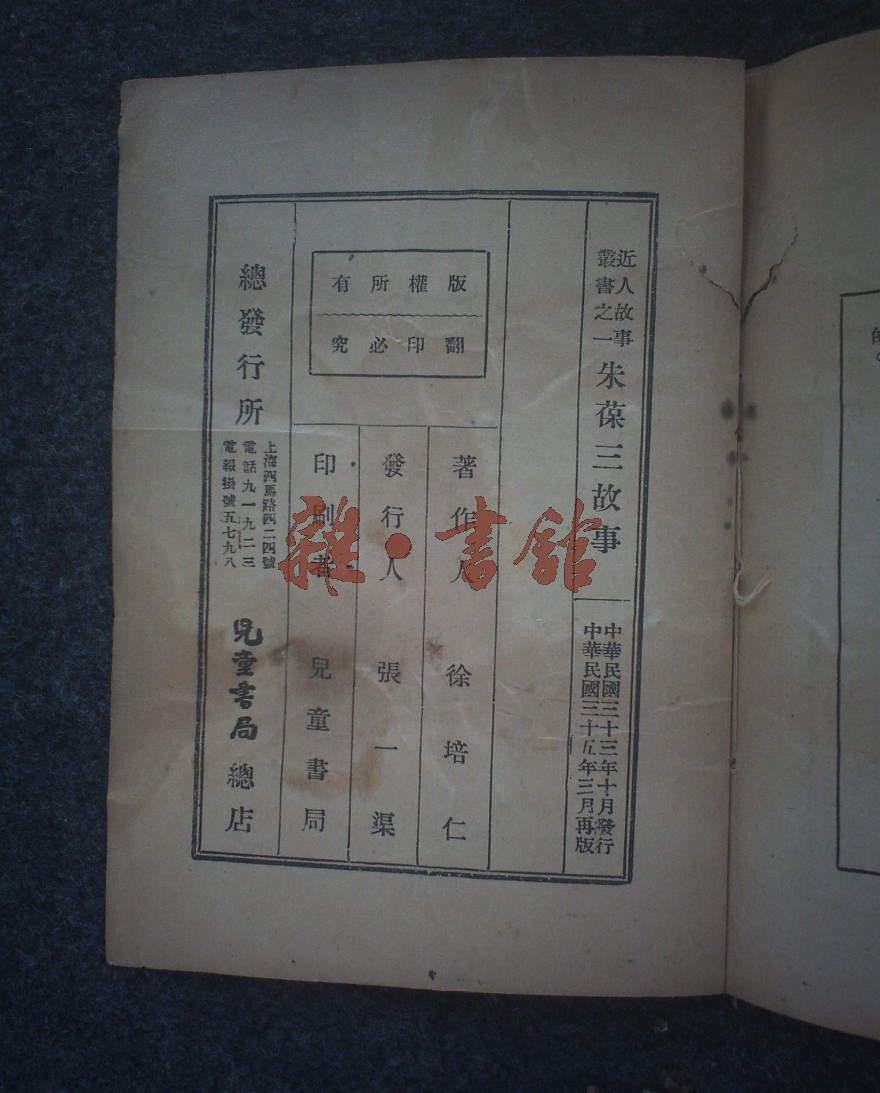 近人故事
叢書之一
朱葆三故事
中華民國三十三年十月發行
中華民國三十五年三月再版
版權所有
翻印必究
著作人 徐培仁
發行人 張一渠
印刷者 兒童書局
總發行所
上海四馬路四二四號
電話九一九二三
電報掛號五七九八
兒童書局總店
雜·書館